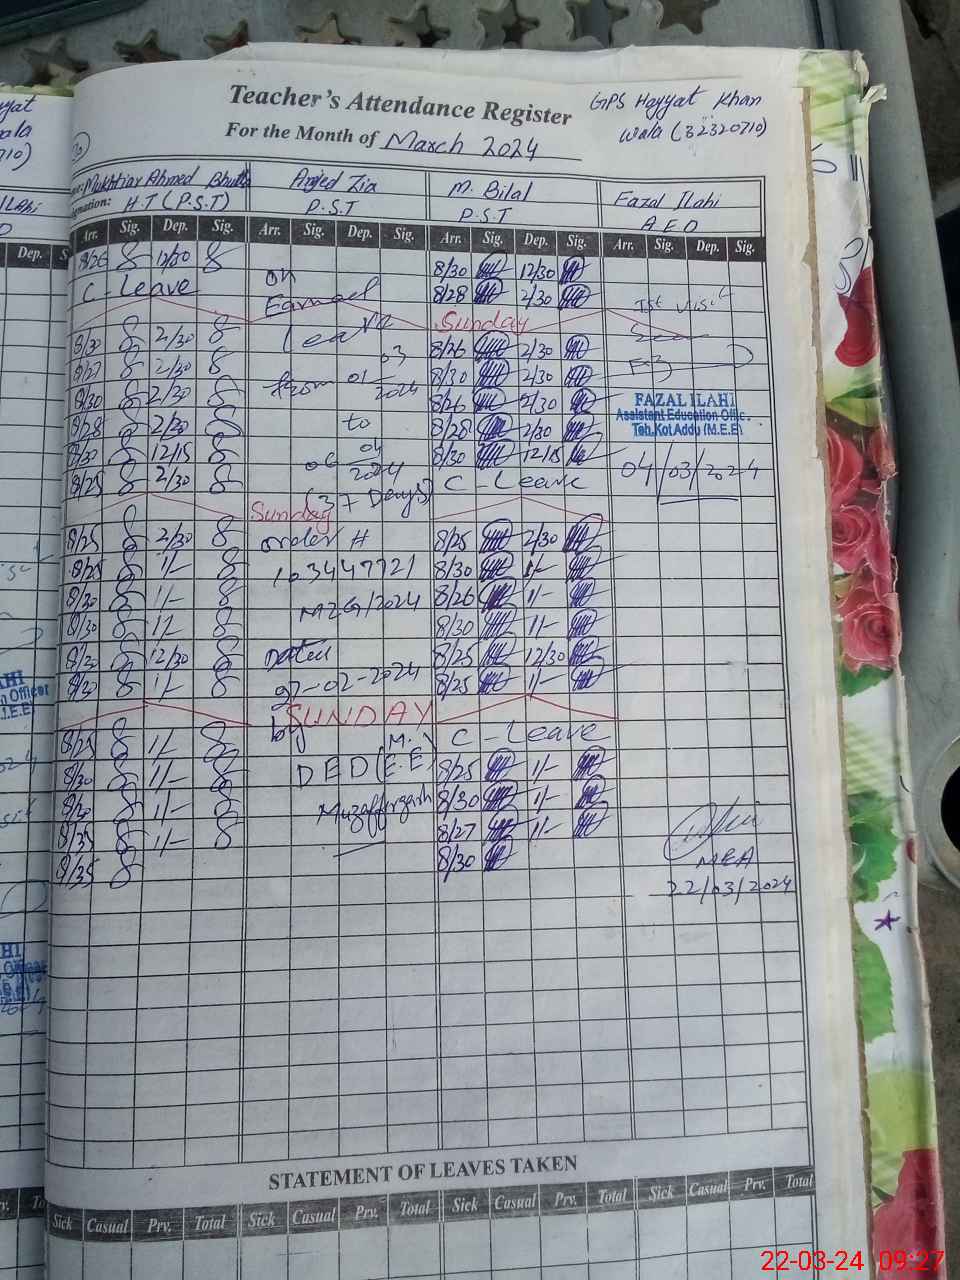 Teacher's Attendance Register
GPS Hayyat Khan
Wala (32320710)
For the Month of March 2024
Mukhtiar Ahmed Bhutta Amjed Zia M. Bilal Fazal Ilahi
Designation: H.T (P.S.T) P.S.T P.S.T AEO
Arr. Sig. Dep. Sig. Arr. Sig. Dep. Sig. Arr. Sig. Dep. Sig. Arr. Sig. Dep. Sig.
8/26 12/30 on 8/30 12/30
C-Leave Earned 8/28 2/30 1st visit
Leave Sunday
8/30 2/30 8/26 2/30
8/27 2/30 03 8/30 2/30
8/30 2/30 from 01 2024 8/26 2/30 FAZAL ILAHI
Assistant Education Offic
8/28 2/30 to 8/28 2/30 Teh. Kot Addu (M.E.E)
8/30 12/15 06 04 2024 8/30 12/15 04/03/2024
8/25 2/30 (37 Days) C-Leave
Sunday
8/25 2/30 order # 8/25 2/30
8/25 1/- 103447721 8/30 1/-
8/30 1/- MZG/2024 8/26 1/-
8/30 1/- 8/30 1/-
8/30 12/30 Dated 8/25 12/30
8/30 1/- 27-02-2024 8/25 1/-
SUNDAY
8/25 1/- by C-Leave
8/30 1/- DED (M.E.E) 8/25 1/-
8/20 1/- Muzaffargarh 8/30 1/-
8/35 1/- 8/27 1/-
8/35 8/30 MEA
22/03/2024
STATEMENT OF LEAVES TAKEN
Sick Casual Prv. Total Sick Casual Prv. Total Sick Casual Prv. Total Sick Casual Prv. Total
22-03-24 09:27